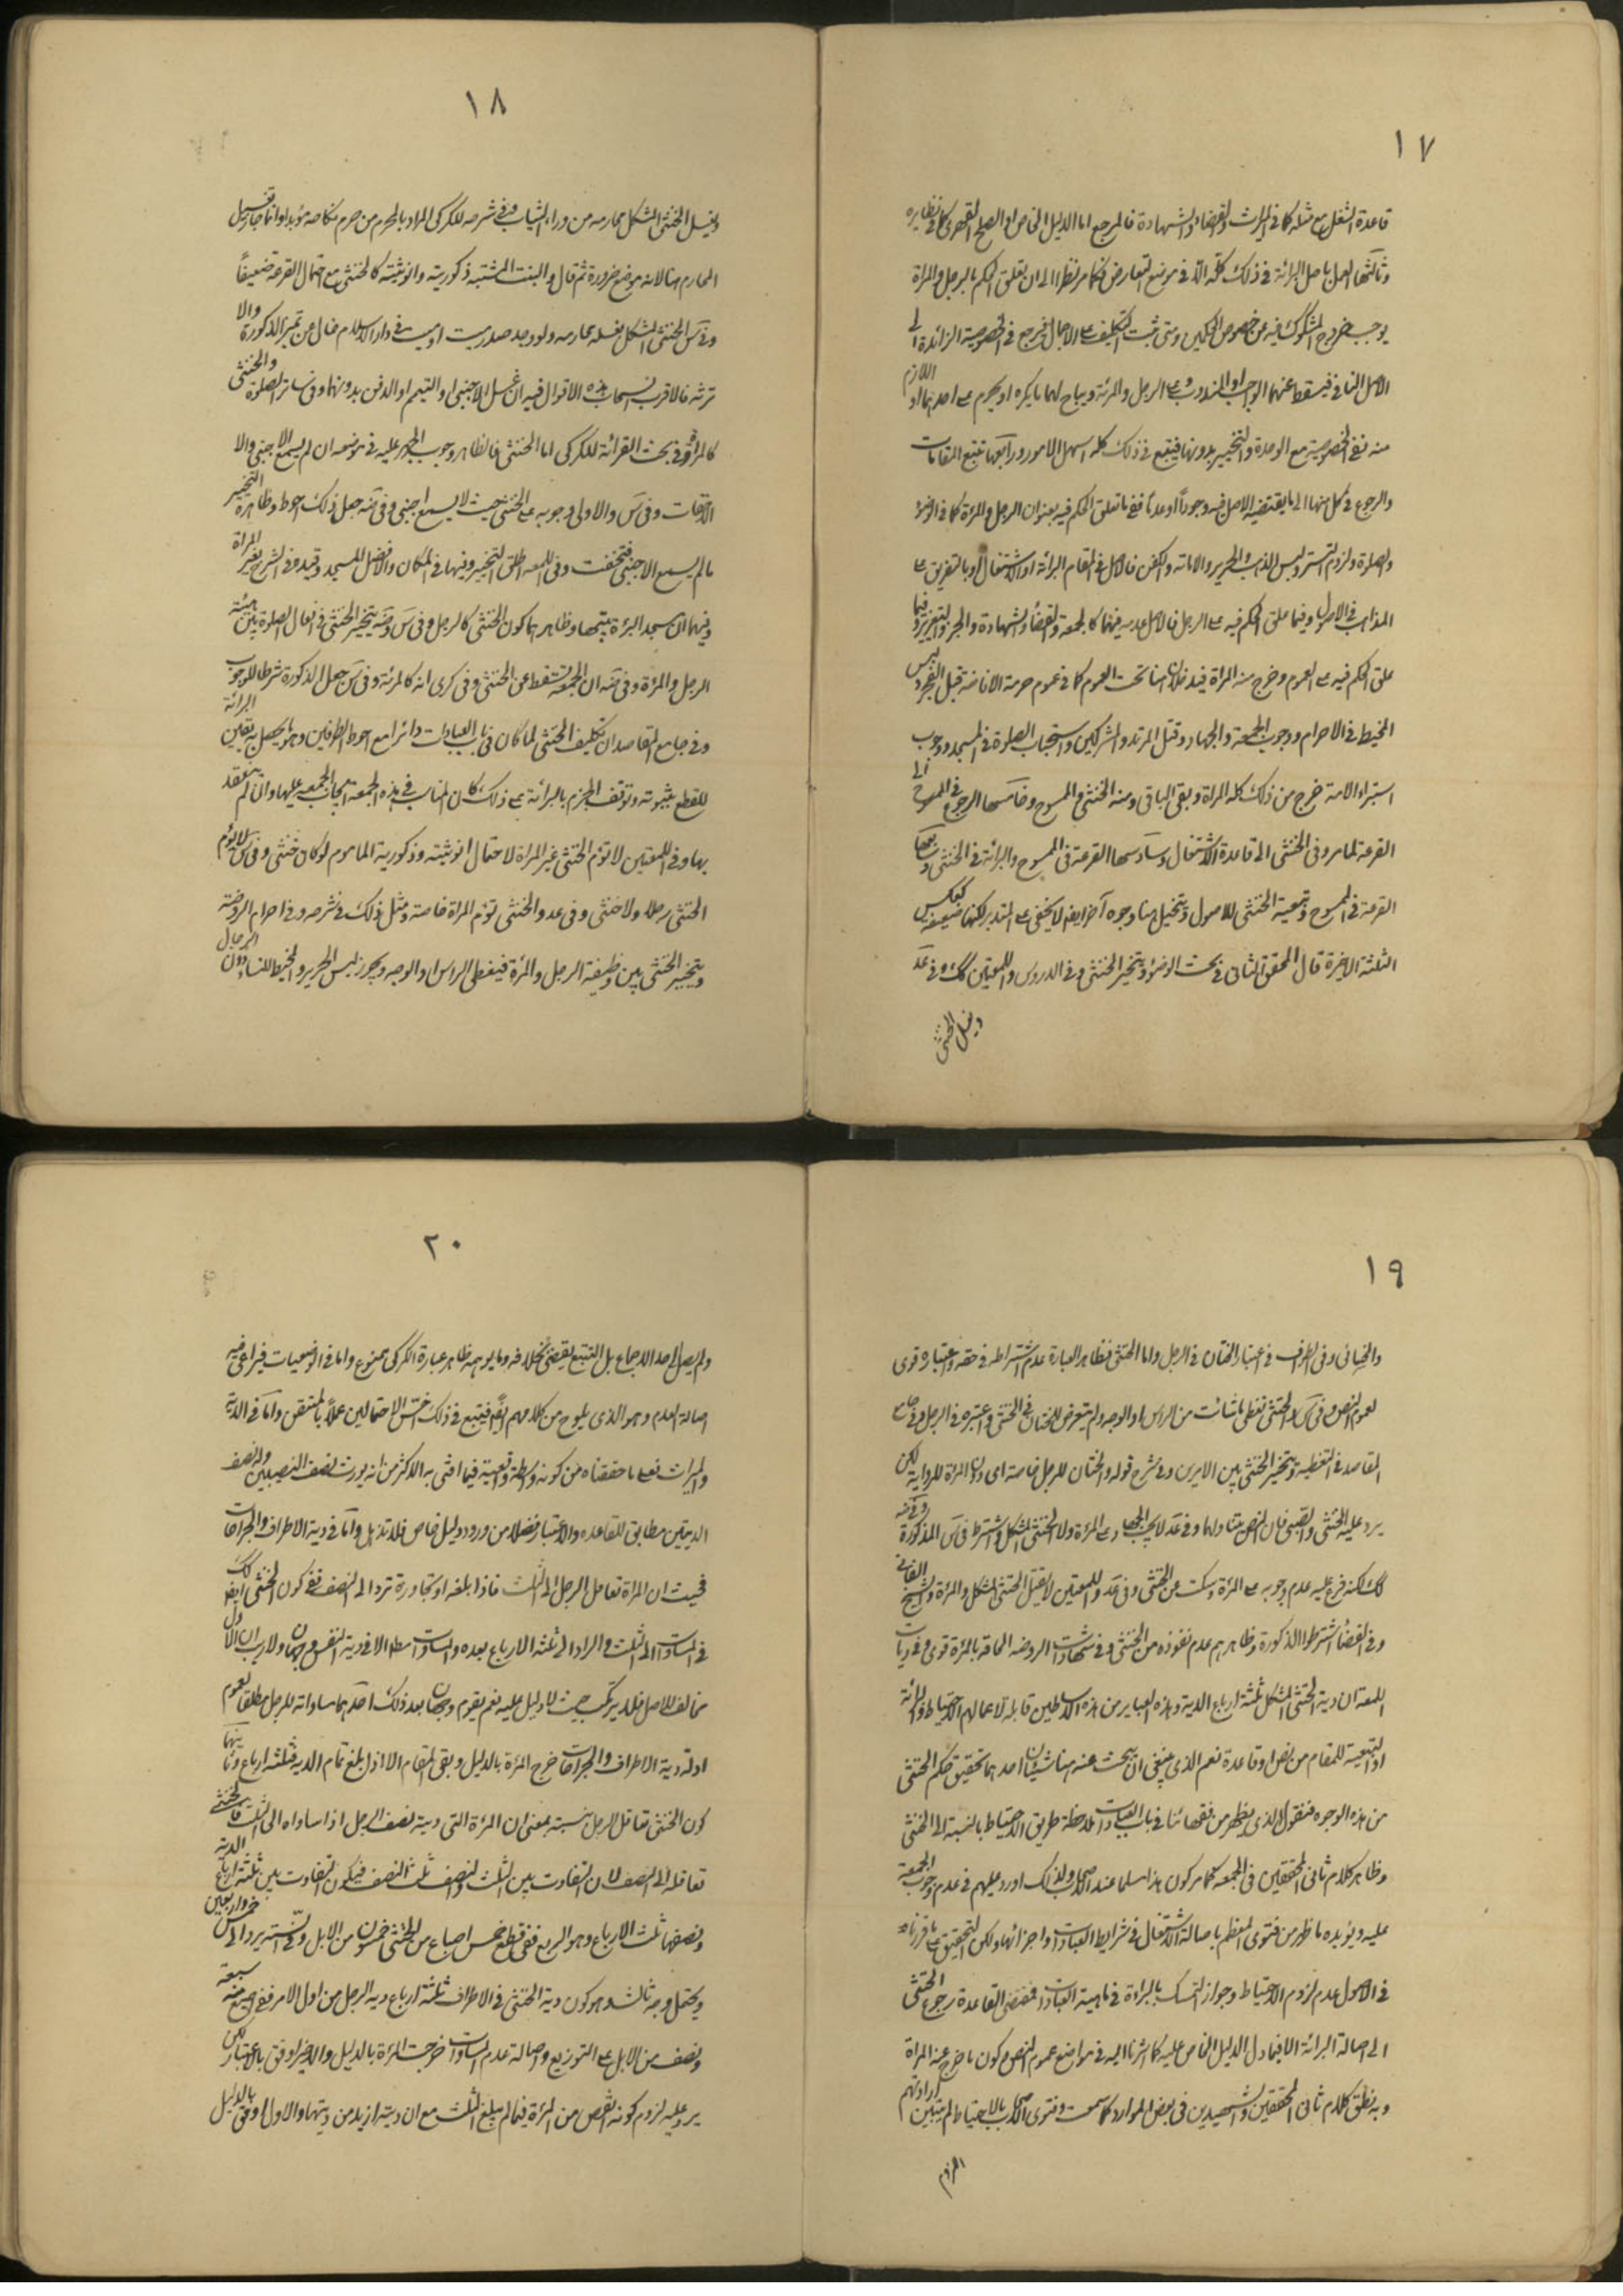 ١٧
قاعدة الشغل مع مثله كما في الميراث والقضاء والشهادة فالمرجع اما الدليل الخاص او الصلح القهري كما في نظايره
وثالثها العمل باصل البرائة في ذلك كله الا في موضع التعارض فكما مر نظرا الى ان تعلق الحكم بالرجل والمراة
يوجب خروج المشكوك فيه عن خصوص الحكمين ومتى ثبت التكليف على الاجمال فيرجع في الخصوصية الزائدة الى
الاصل النافي فيسقط عنهما الواجب او المندوب على الرجل والمرئة ويباح لهما ما يكره او يحرم على احدهما او اللازم
منه نفي الخصوصية مع الوحدة والتخيير بدونها فيتبع في ذلك كله اسهل الامور ورابعها تتبع المقامات
والرجوع في كل منها الى ما يقتضيه الاصل فيه وجودا او عدما ففي ما تعلق الحكم فيه بعنوان الرجل والمرئة كما في الوضوء
والصلوة ولزوم التستر ولبس الذهب والحرير والامامة والكفن فالاصل في المقام البرائة او الاشتغال او بالتفريق على
المذاهب في الاصول وفيما علق الحكم فيه على الرجل فالاصل عدمه فيهما كالجمعة والقضاء والشهادة والجهر والتعزير وفيما
علق الحكم فيه على العموم وخرج منه المراة فيدخلان هنا تحت العموم كما في عموم حرمة الافاضة قبل الفجر ولبس
المخيط في الاحرام ووجوب الجمعة والجهاد وقتل المرتد والمشركين واستحباب الصلوة في المسجد ووجوب
استبراء الامة خرج من ذلك كله المراة وبقي الباقي ومنه الخنثى والممسوح وخامسها الرجوع في الممسوح الى
القرعة لما مر وفي الخنثى الى قاعدة الاشتغال وسادسها القرعة في الممسوح والبرائة في الخنثى وسابعها
القرعة في الممسوح وتبعية الخنثى للاصول ويتخيل هنا وجوه آخر ايضا لا يخفى على المتدبر لكنها ضعيفة كعكس
الثلثة الاخيرة قال المحقق الثاني في بحث الوضوء ويتخير الخنثى وفي الدروس واللمعتين كك وفي عد
ويغسل الخنثى
١٨
ويغسل الخنثى المشكل محارمه من وراء الثياب وفي شرحه للكركي المراد بالمحرم من حرم نكاحه مؤبدا وانما جاز تغسيل
المحارم هنا لانه موضع ضرورة ثم قال والبنت المشتبه ذكوريته وانوثيته كالخنثى مع احتمال القرعة ضعيفا
وفي س الخنثى المشكل يغسله محارمه ولو وجد صدر ميت او ميت في دار الاسلام خال عن تميز الذكورة والا
ترثه فالاقرب انسحاب هذه الاقوال فيه ان غسل الاجنبي او التيمم او الدفن بدونهما وفي ساتر الصلوة والخنثى
كالمراة وفي بحث القرائة للكركي اما الخنثى فالظاهر وجوب الجهر عليه في موضعه ان لم يسمع الاجنبي والا
اخفات وفي س والاولى وجوبه على الخنثى حيث لا يسمع اجنبي وفي ضه جعل ذلك احوط وظاهره التخيير
مالم يسمع الاجنبي فتخفت وفي اللمعه اطلق التخيير وفيها في المكان والافضل المسجد وقيده في الشرح بغير المراة
وفيهما ان مسجد المرئة بيتها وظاهرهما كون الخنثى كالرجل وفي س وضه يتخير الخنثى في افعال الصلوة بين هيئة
الرجل والمرئة وفي ضه ان الجمعة تسقط عن الخنثى وفي كرى انه كالمرئة وفي س جعل الذكورة شرطا للوجوب
وفي جامع المقاصد ان تكليف الخنثى لما كان في باب العبادات دائرا مع احوط الطرفين وهو ما يحصل به يقين البرائة
للقطع بثبوته وتوقف الجزم بالبرائة على ذلك كان المناسب في هذه الجمعة ايجاب الجمعة عليها وان لم تنعقد
بها وفي اللمعتين لا تؤم الخنثى غير المراة لاحتمال انوثيته وذكورية الماموم لو كان خنثى وفي س لا يؤم
الخنثى رجلا ولا خنثى وفي عد والخنثى تؤم المراة خاصة ومثل ذلك في شرحه وفي احرام الروضة
ويتخير الخنثى بين وظيفة الرجل والمرئة فيغطي الراس او الوجه ويجوز لبس الحرير والمخيط للنساء دون الرجال
١٩
والخناثى وفي الطواف في اعتبار الختان في الرجل واما الخنثى فظاهر العبارة عدم اشتراطه في حقه واعتباره قوى
لعموم النص وفي ك الخنثى تغطى ما شائت من الراس او الوجه ولم يتعرض للختان في الخنثى واعتبره في الرجل وفي جامع
المقاصد في التغطية ويتخير الخنثى بين الامرين وفي شرح قوله والختان للرجل خاصة اى دون المرئة للرواية لكن
يرد عليه الخنثى والصبي فان النص يتناولهما وفي عد لا يجب الجهاد على المرئة ولا الخنثى المشكل واشترط في س الذكورة وفي ضه
كك لكنه فرع عليه عدم وجوبه على المرئة وسكت عن الخنثى وفي عد واللمعتين لا يقتل الخنثى المشكل والمرئة والشيخ الفاني
وفي القضاء اشترطوا الذكورة وظاهرهم عدم نفوذه من الخنثى وفي شهادات الروضه الحاقه بالمرئة قوى وفي ديات
اللمعة ان دية الخنثى المشكل ثلثة ارباع الدية وهذه العبائر من هذه الاساطين قابلة لاعمالهم الاحتياط والبرائة
او التبعية للمقام من نص او قاعدة نعم الذي ينبغي ان يبحث عنه هنا شيئان احدهما تحقيق حكم الخنثى
من هذه الوجوه فنقول الذي يظهر من فقهائنا في باب العبادات ملاحظة طريق الاحتياط بالنسبة الى الخنثى
وظاهر كلام ثاني المحققين في الجمعه كما مر كون هذا مسلما عند الاصحاب ولذلك اورد عليهم في عدم وجوب الجمعة
عليه ويؤيده ما ظهر من فتوى المعظم باصالة الاشتغال في شرايط العبادات واجزائها ولكن التحقيق على ما قررناه
في الاصول عدم لزوم الاحتياط وجواز التمسك بالبراءة في ماهية العبادات فمقتضى القاعدة رجوع الخنثى
الى اصالة البرائة الا فيما دل الدليل الخاص عليه كما اشرنا اليه في مواضع عموم النص وكون ما خرج عنه المراة
وبه نطق كلام ثاني المحققين والشهيدين في بعض الموارد كما سمعت وفتوى الاصحاب بالاحتياط لم يتبين ارادتهم
اللزوم
٢٠
ولم يصل الى حد الاجماع بل التتبع يقضي بخلافه وما يوهمه ظاهر عبارة الكركي ممنوع واما في الوضعيات فيراعى فيه
اصالة العدم وهو الذي يلوح من كلامهم ايضا فيتبع في ذلك اخس الاحتمالين عملا بالمتيقن واما في الدية
والميراث فعلى ما حققناه من كونه واسطة وتبعية فيما افتى به الاكثر من انه يورث نصف النصيبين ونصف
الديتين مطابق للقاعده والاعتبار فضلا من ورود دليل خاص فلا تذهل واما في دية الاطراف والجراحات
فحيث ان المراة تعامل الرجل الى الثلث فاذا بلغه او تجاوزه ترد الى النصف ففي كون الخنثى ايضا كك
في المساواة الى الثلث والرد الى ثلثة الارباع بعده والمساواة مطلقا الا في دية النفس وجهان ولا ريب ان الاول
مخالف للاصل فلا يرتكب حيث لا دليل عليه نعم يقوم وجهان بعد ذلك احدهما مساواته للرجل مطلقا لعموم
ادلة دية الاطراف والجراحات خرج المرئة بالدليل وبقي المقام الا اذا بلغ تمام الدية فثلثة ارباع وثانيهما
كون الخنثى تقابل الرجل بنسبة بمعنى ان المرئة التي دية نصف الرجل اذا ساواه الى الثلث فالخنثى
تعاقله الى النصف لان التفاوت بين الثلث والنصف ثلث النصف فيكون التفاوت بين ثلثة ارباع الدية
ونصفها ثلث الارباع وهو الربع ففي قطع خمس اصابع من الخنثى خمسون من الابل وفي الستة يرد الى خمس واربعين
ويحتمل وجه ثالث وهو كون دية الخنثى في الاطراف ثلثة ارباع دية الرجل من اول الامر ففي اصبع منه سبعة
ونصف من الابل على التوزيع واصالة عدم المساواة خرجت المرئة بالدليل والاخير اوفق بالاعتبار لكن
يرد عليه لزوم كونه انقص من المرئة فيما لم يبلغ الثلث مع ان ديته ازيد من ديتها والاول اوفق بالدليل